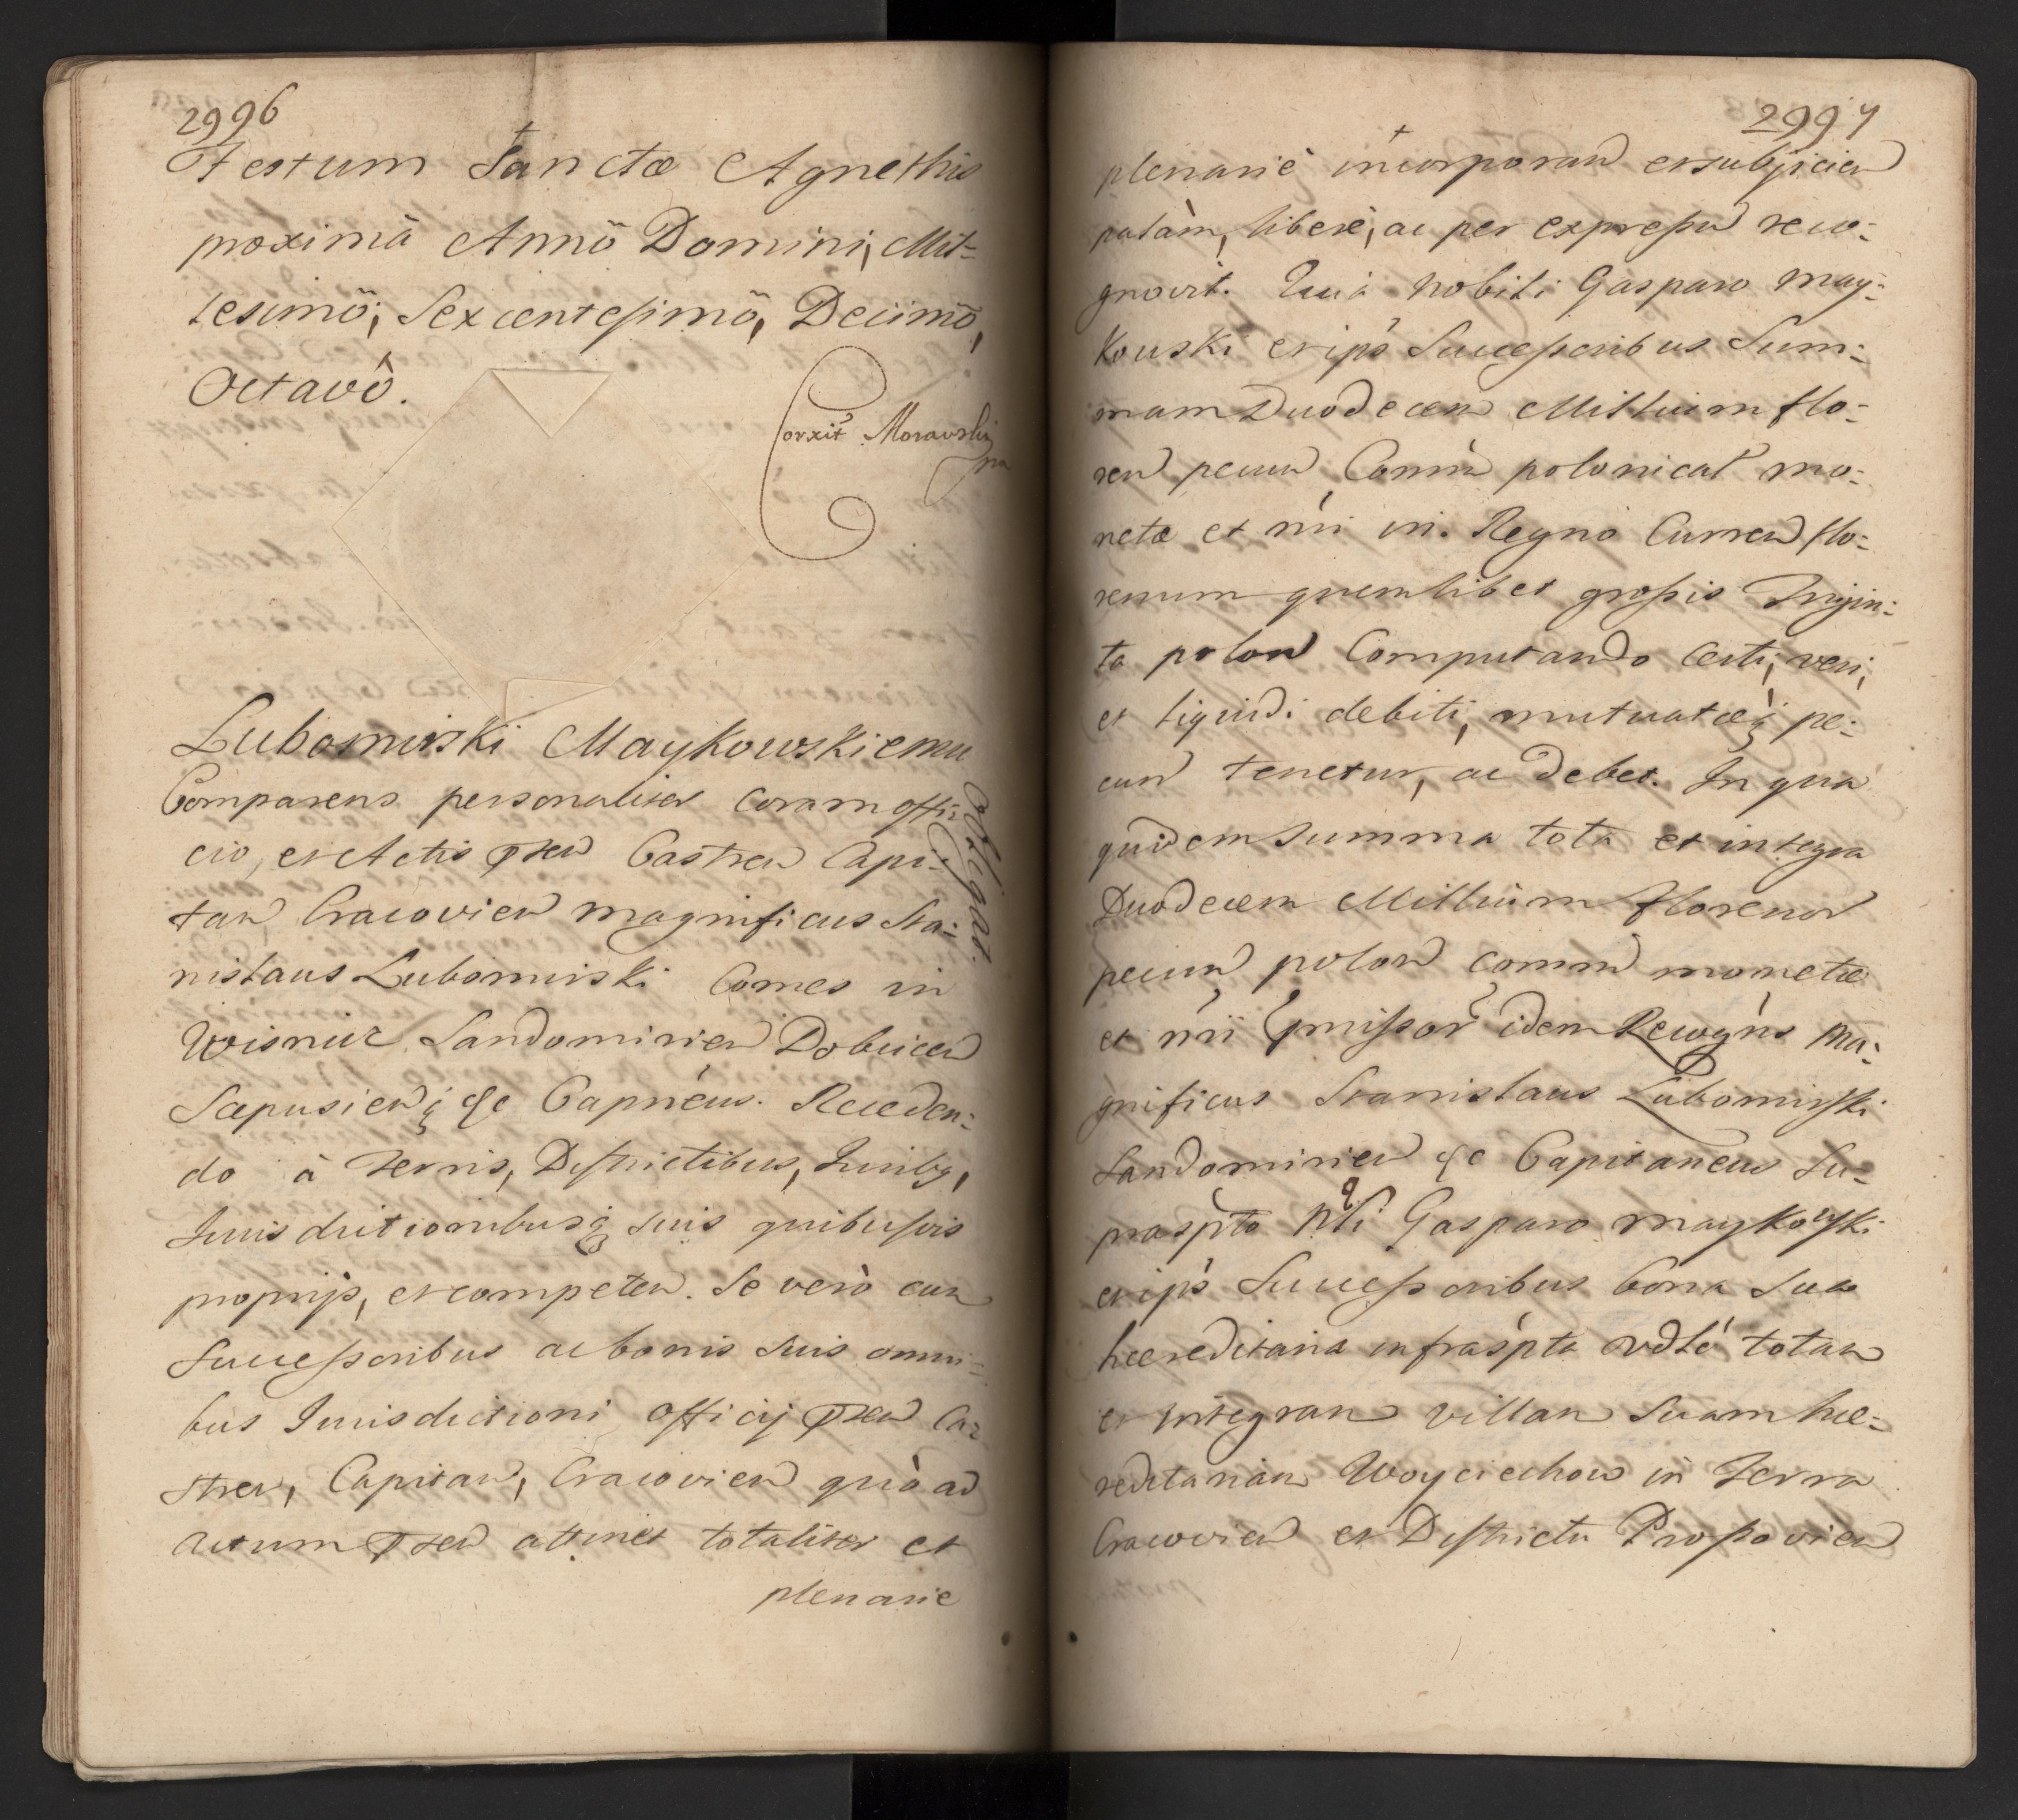 2996
Festum Sanctæ Agnethis
proximâ Annô Domini, Mil=
lesimô, Sexcentesimô, Decimô,
Octavô.
Corxit Morawski
mp
Lubomirski Maykowskiemu
obligat.
Comparens personaliter coram offi=
cio, et Actis pñsen Castren Capi=
tan Cracovien magnificus Sta=
nislaus Lubomirski Comes in
Wisnicz Sandomirien Dobcicen
Scepusienq; &c Capnéus. Receden=
do à Terris, Districtibus, Juribq,
Jurisdictionibusq; suis quibusvis
proprijs, et competen. Se verò cum
Successoribus ac bonis suis omni=
bus Jurisdictioni officij pñsen Ca=
stren, Capitan, Cracovien quò ad
actum pñsen attinet totaliter et
plenarie
2997
plenariè incorporan et subjicien
palàm, liberè, ac per expressũ reco=
gnovit. Quia nobili Gasparo May=
kouski et ipś Successoribus Sum=
mam Duodecem Millium flo=
ren pecun Commũ polonical mo=
netæ et nrĩ in Regno Curren flo=
renum quemlibet grossis Trigin=
ta polon Computando certi, veri,
et liquidi debiti, mutuatæq; pe=
cun tenetur, ac debet. In qua
quidem summa tota et integra
Duodecem Millium florenor
pecun polon commũ monetæ
et nrĩ pmissor idem Recogńs Ma=
gnificus Stanislaus Lubomirski
Sandomirien &c Capitaneus Su=
praspto Nbli Gasparo maykowski
et ipś Successoribus bona sua
hæreditaria infraspta vdlt totam
et integram villam suam hæ=
reditariam Woyciechow in Terra
Cracovien et Districtu Proszovien